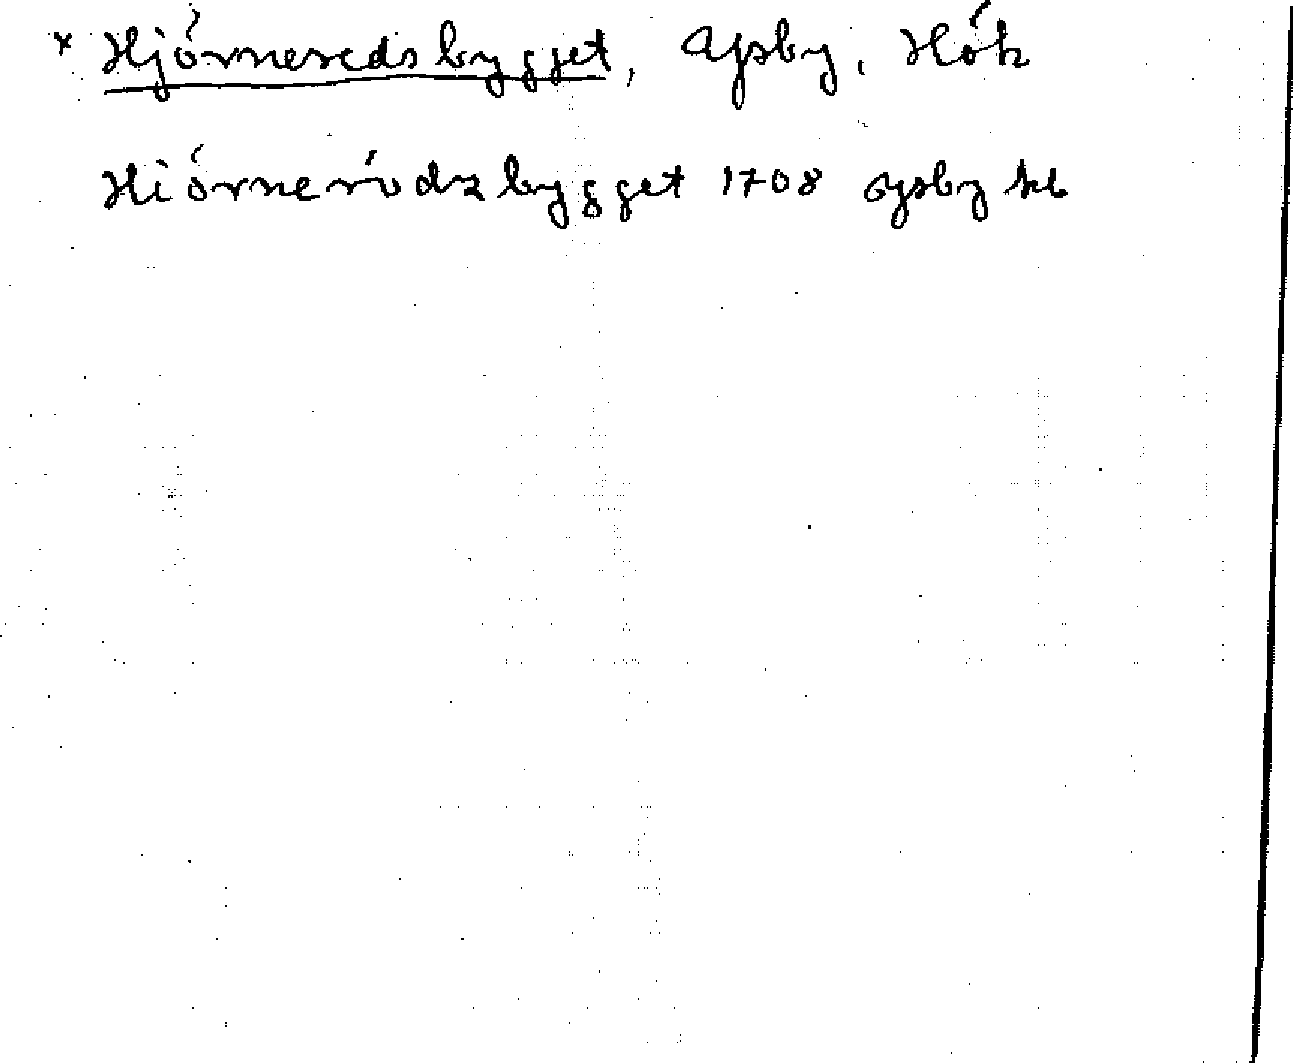 x Hjörneredsbygget, Ysby, Hök
Hiörnerödzbygget 1708 Ysby kb